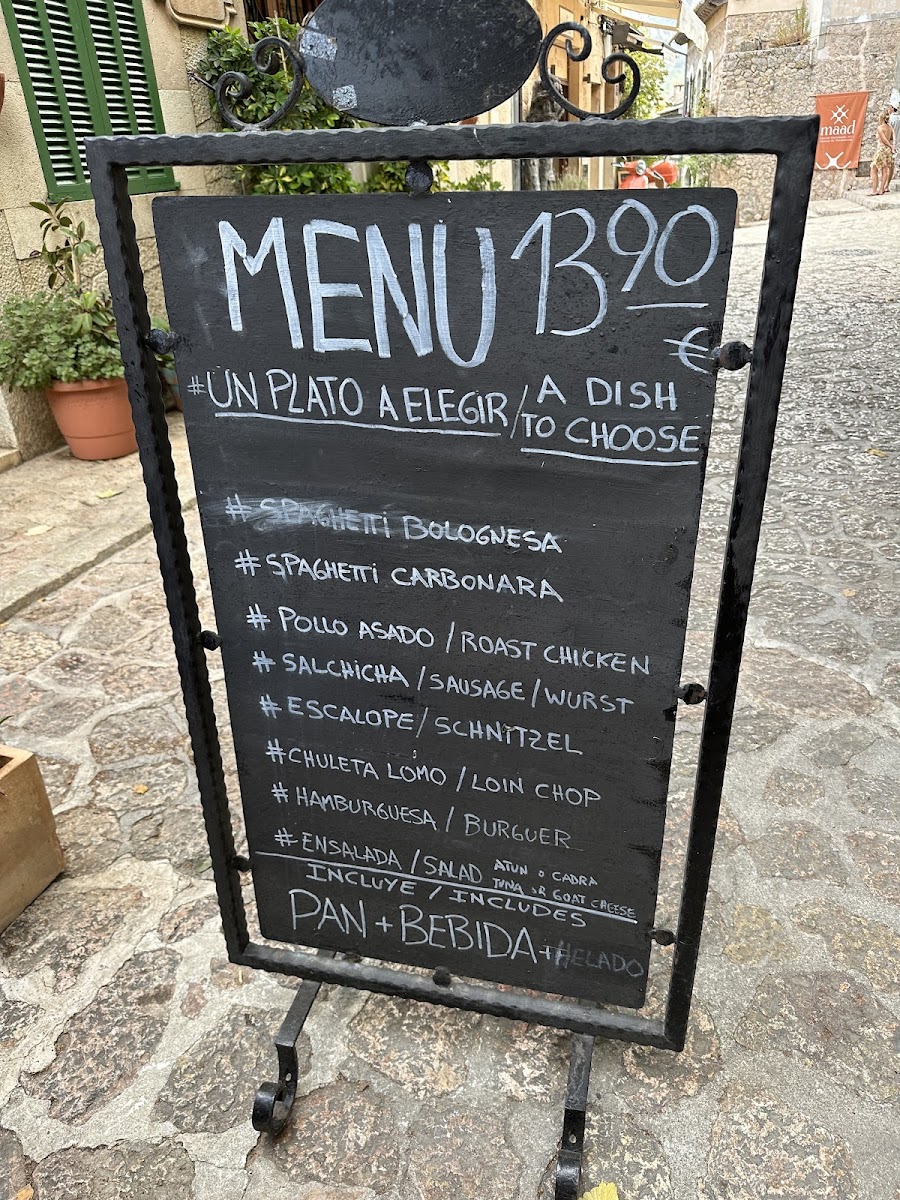 maad
MENU 13 90
€
#UN PLATO A ELEGIR / A DISH TO CHOOSE
# SPAGHETTI BOLOGNESA
# SPAGHETTI CARBONARA
# POLLO ASADO / ROAST CHICKEN
# SALCHICHA / SAUSAGE / WURST
# ESCALOPE / SCHNITZEL
# CHULETA LOMO / LOIN CHOP
# HAMBURGUESA / BURGUER
# ENSALADA / SALAD ATUN O CABRA
TUNA OR GOAT CHEESE
INCLUYE / INCLUDES
PAN + BEBIDA + HELADO